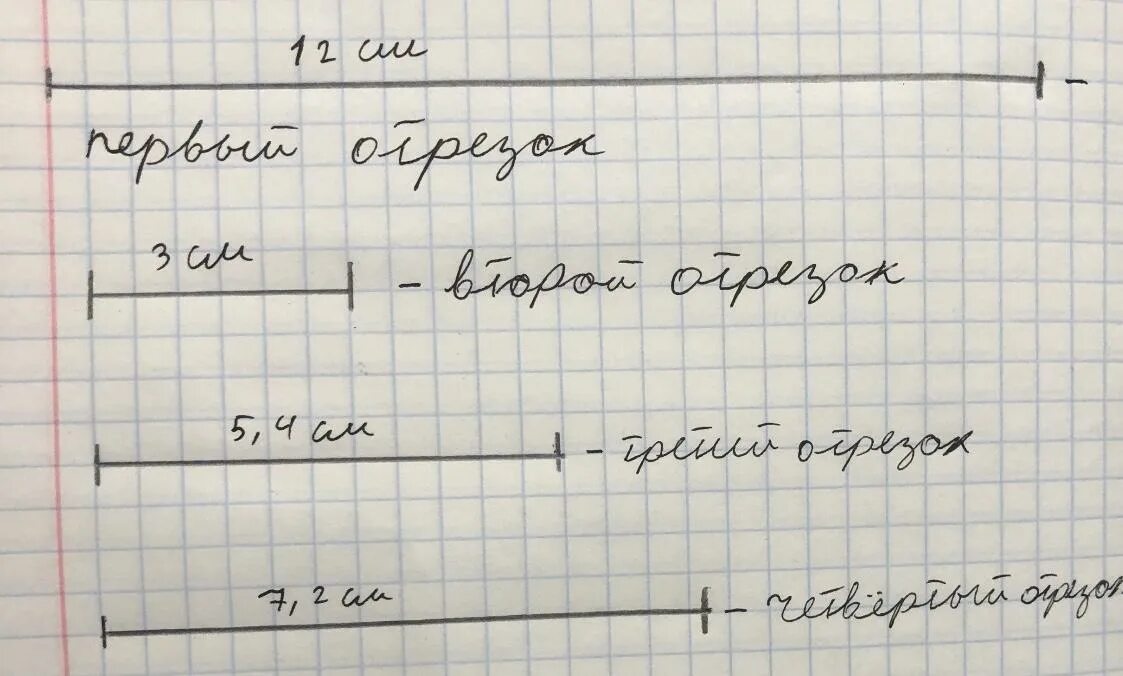 12 см
-
первый отрезок
3 см
- второй отрезок
5,4 см
- третий отрезок
7,2 см
- четвёртый отрезок